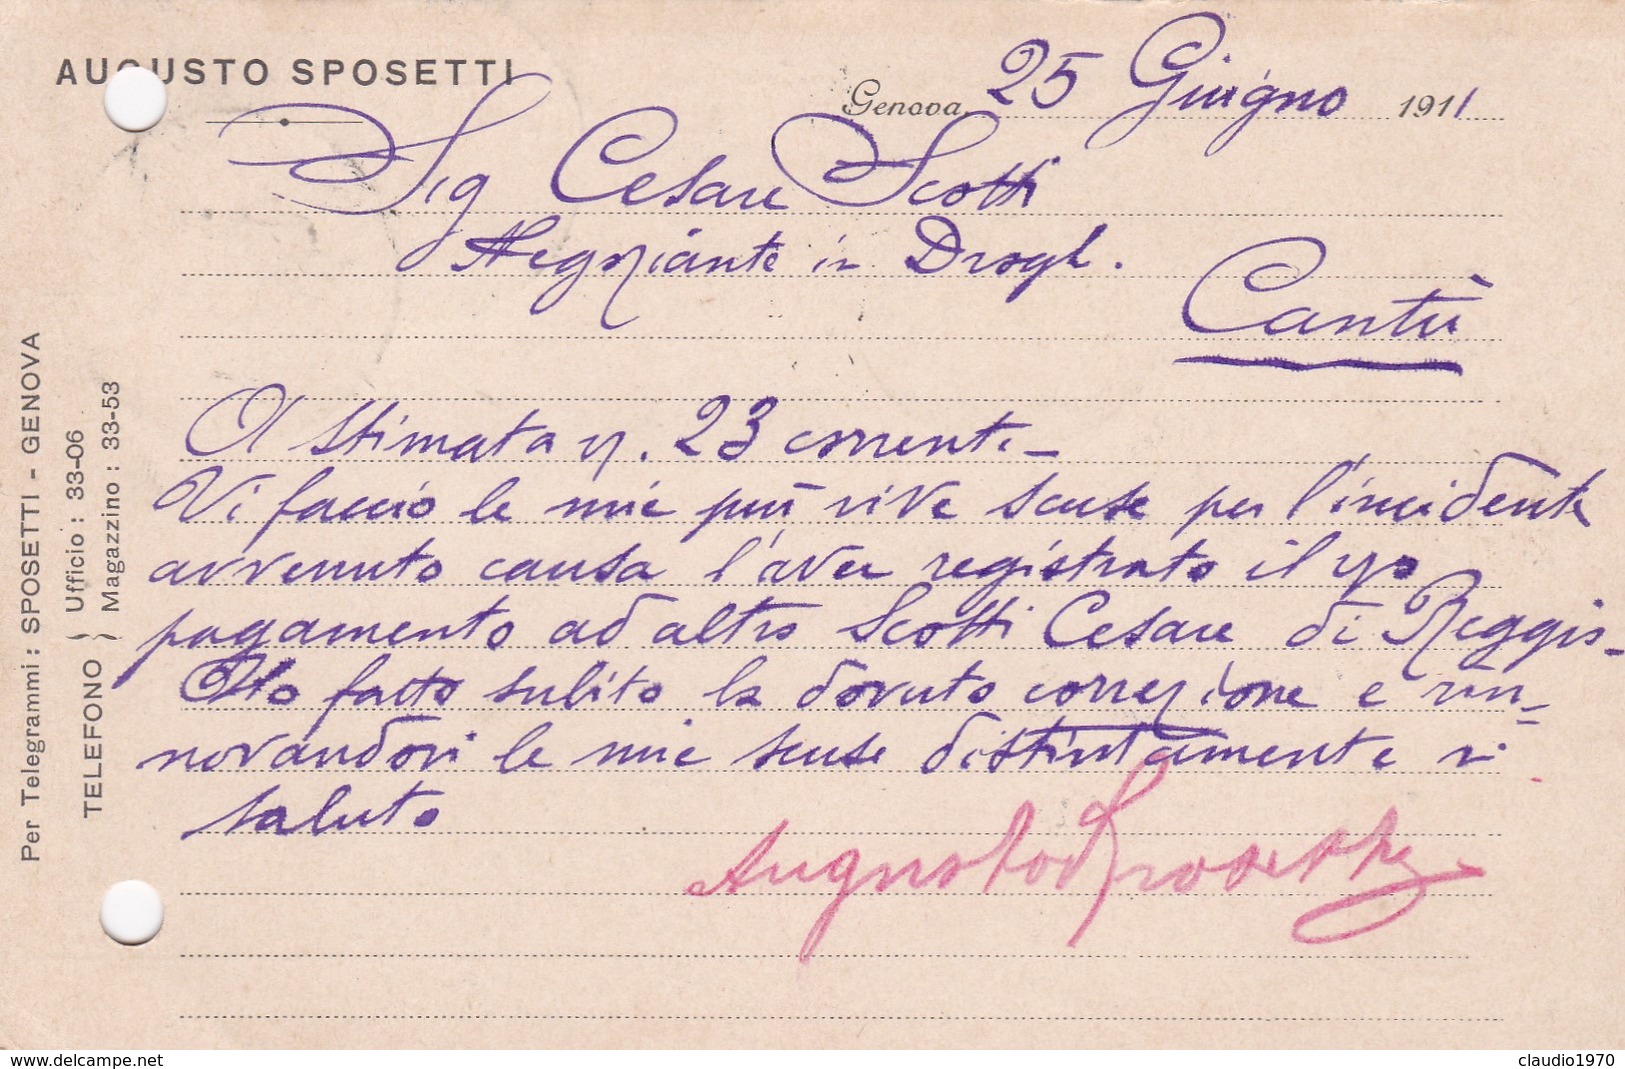 AUGUSTO SPOSETTI
Genova, 25 Giugno 1911
Sig Cesare Scotti
Negoziante in Drogh.
Cantù
A stimata v. 23 corrente_
Vi faccio le mie più vive scuse per l'incidente
avvenuto causa l'aver registrato il vo
pagamento ad altro Scotti Cesare di Reggio_
Ho fatto subito la dovuta correzione e rin=
novandovi le mie scuse distintamente vi
saluto
Augusto Sposetti
Per Telegrammi: SPOSETTI - GENOVA
TELEFONO } Ufficio: 33-06
Magazzino: 33-53
www.delcampe.net
claudio1970